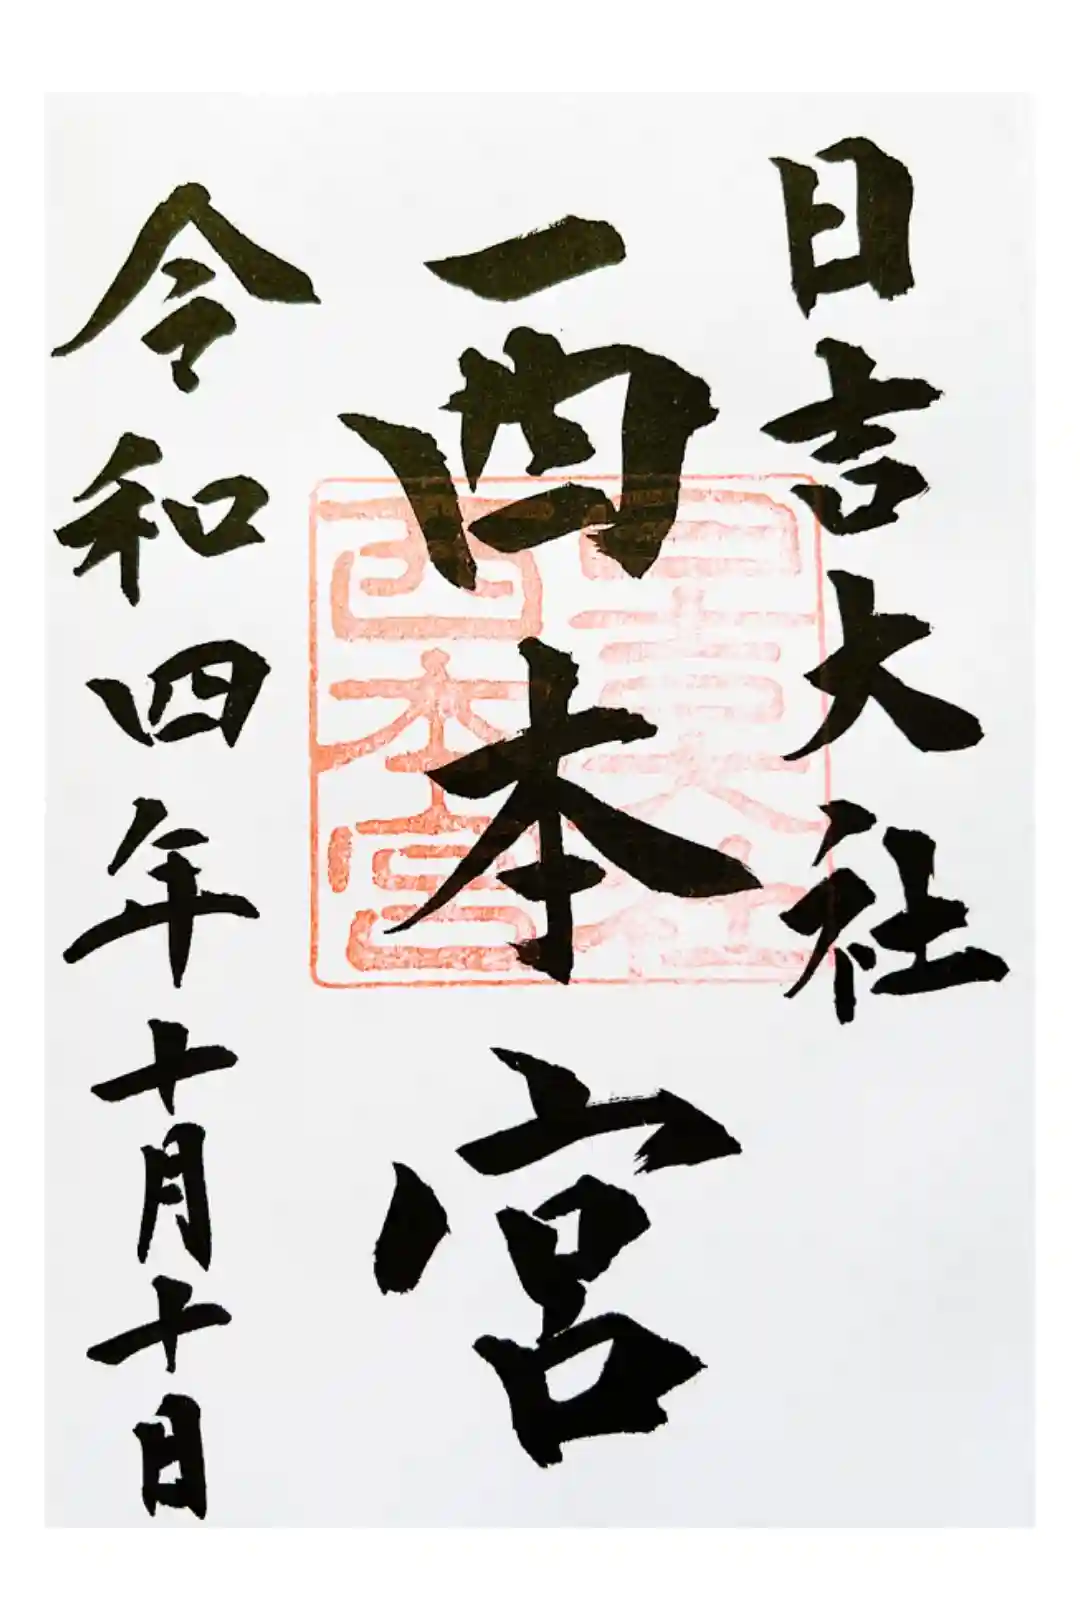 日吉大社
西本宮
令和四年十月十日
日吉大社
西本宮